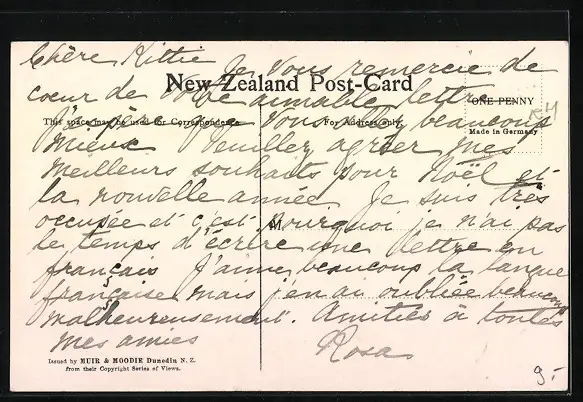 Chère Kittie Je vous remercie de
New Zealand Post-Card
coeur de votre aimable lettre
ONE PENNY
This space may be used for Correspondence
For Address only.
J'espère que vous allez beaucoup
Made in Germany
mieux Veuillez agréer mes
meilleurs souhaits pour Noël et
la nouvelle année Je suis très
occupée et c'est pourquoi je n'ai pas
M.
le temps d'écrire une lettre en
français J'aime beaucoup la langue
française mais j'en ai oubliée beaucoup
malheureusement. Amitiés à toutes
mes amies
Rosa
Issued by MUIR & MOODIE Dunedin N. Z.
from their Copyright Series of Views.
9.-